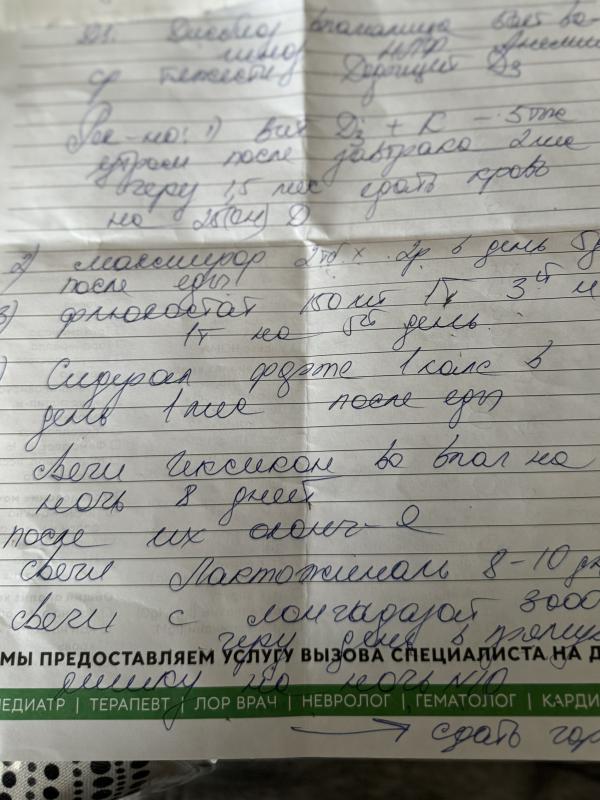 DS: Дисбиоз влагалища
ср тяжести Дефицит D3
Рек-но: 1) вит D3 + К - 5 тыс
утром после завтрака 2 мес
через 1,5 мес сдать кровь
на 25(он) D
2) макмирор 2 тб х 2р в день
после еды
3) флюкостат 150 мг 1т 3й
1т на 5й день.
Сидерал форте 1 капс в
день 1 мес после еды
свечи Гексикон во влаг на
ночь 8 дней
после их оконч-я
свечи Лактожиналь 8-10
свечи с лонгидазой 3000
через день в прямую
МЫ ПРЕДОСТАВЛЯЕМ УСЛУГУ ВЫЗОВА СПЕЦИАЛИСТА НА
кишку на ночь N10
ПЕДИАТР | ТЕРАПЕВТ | ЛОР ВРАЧ | НЕВРОЛОГ | ГЕМАТОЛОГ |
→ сдать